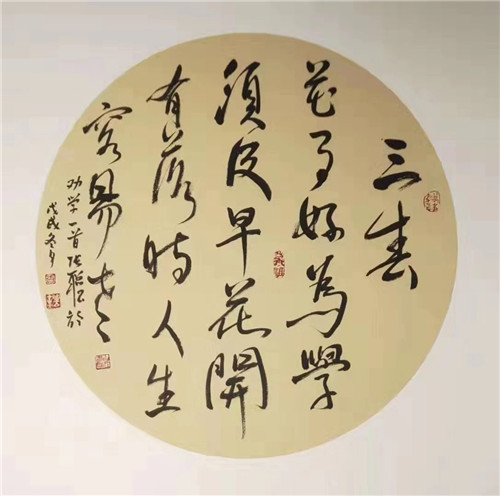 三春
花事好為學
須及早花開
有落時人生
容易老
劝学一首
戊戌冬月